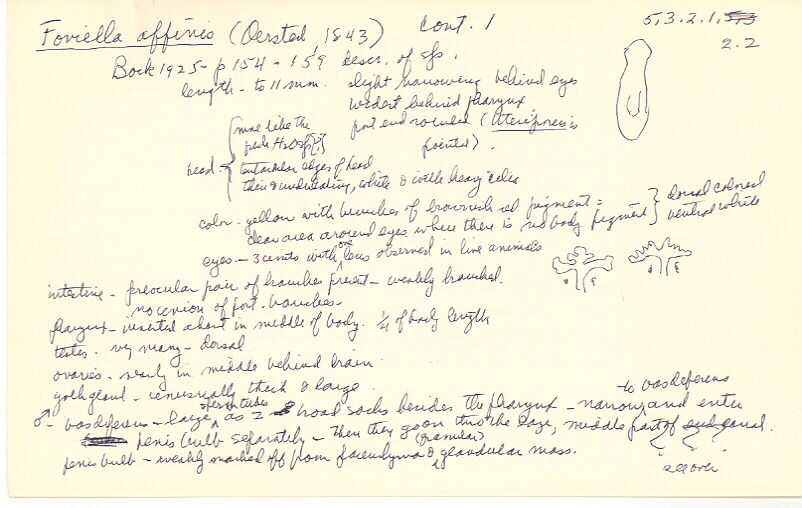 Foviella affinis (Oersted, 1843) cont. 1 5,3.2.1,
2.2
Bock 1925 - p 154 - 159 descr. of sfs.
length - to 11 mm. slight narrowing behind eyes
widest behind pharynx
post end rounded (Uteriporus is
pointed).
head - more like the
tentacular edges of head
thin & undulating, white & with heavy cilia
color - yellow with bunches of brownish red pigment = dorsal colored
clear area around eyes where there is no body pigment ventral white
eyes - 3 cints with one lens observed in live animals
intestine - preocular pair of branches present - weakly branched.
no union of post. branches -
pharynx - inserted about in middle of body. 1/4 of body length
testes - very many - dorsal
ovaries - nearly in middle behind brain
yolk gland - unusually thick & large.
♂ - vas deferens - large, as 2 broad sacks besides the pharynx - narrow and enter
sperm tubes to vas deferens
penis bulb separately - then they go on thro the large, middle part of canal.
penis bulb - weakly marked off from parenchyma & glandular mass.
(granular)
see over